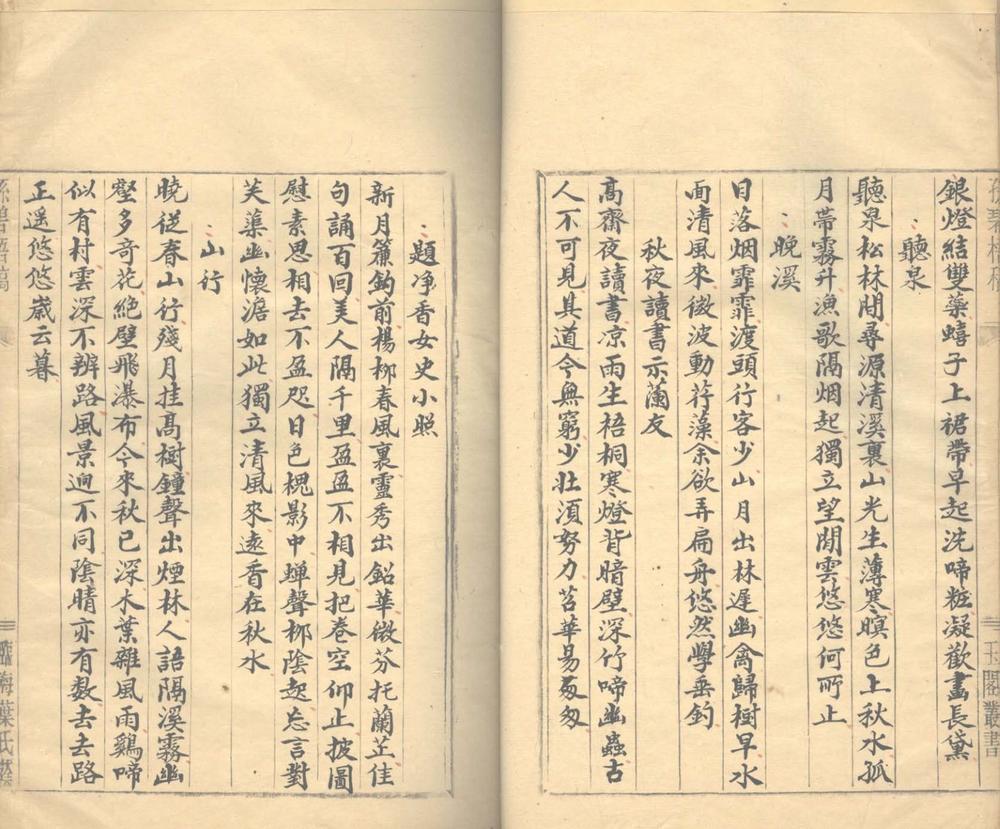 孫碧梧稿
玉閣叢書
銀燈結雙蘂蟢子上裙帶早起洗啼粧凝歡畫長黛
聽泉
聽泉松林閒尋源清溪裏山光生薄寒暝色上秋水孤
月帶霧升漁歌隔烟起獨立望閒雲悠悠何所止
晚溪
日落烟霏霏渡頭行客少山月出林遲幽禽歸樹早水
面清風來微波動荇藻余欲弄扁舟悠然學垂釣
秋夜讀書示蘭友
高齋夜讀書凉雨生梧桐寒燈背暗壁深竹啼幽蟲古
人不可見其道今無窮少壮湏努力苕華易匆匆
題净香女史小照
新月簾鈎前楊柳春風裏靈秀出鉛華微芬托蘭芷佳
句誦百回美人隔千里盈盈不相見把卷空仰止披圖
慰素思相去不盈咫日色槐影中蟬聲栁陰起忘言對
芙蕖幽懷澹如此獨立清風來遠香在秋水
山行
曉從春山行殘月挂高樹鐘聲出煙林人語隔溪霧幽
壑多奇花絶壁飛瀑布今來秋已深木葉雜風雨鷄啼
似有村雲深不辨路風景迥不同陰晴亦有數去去路
正遥悠悠嵗云暮
孫碧梧稿
臨海葉氏蔭